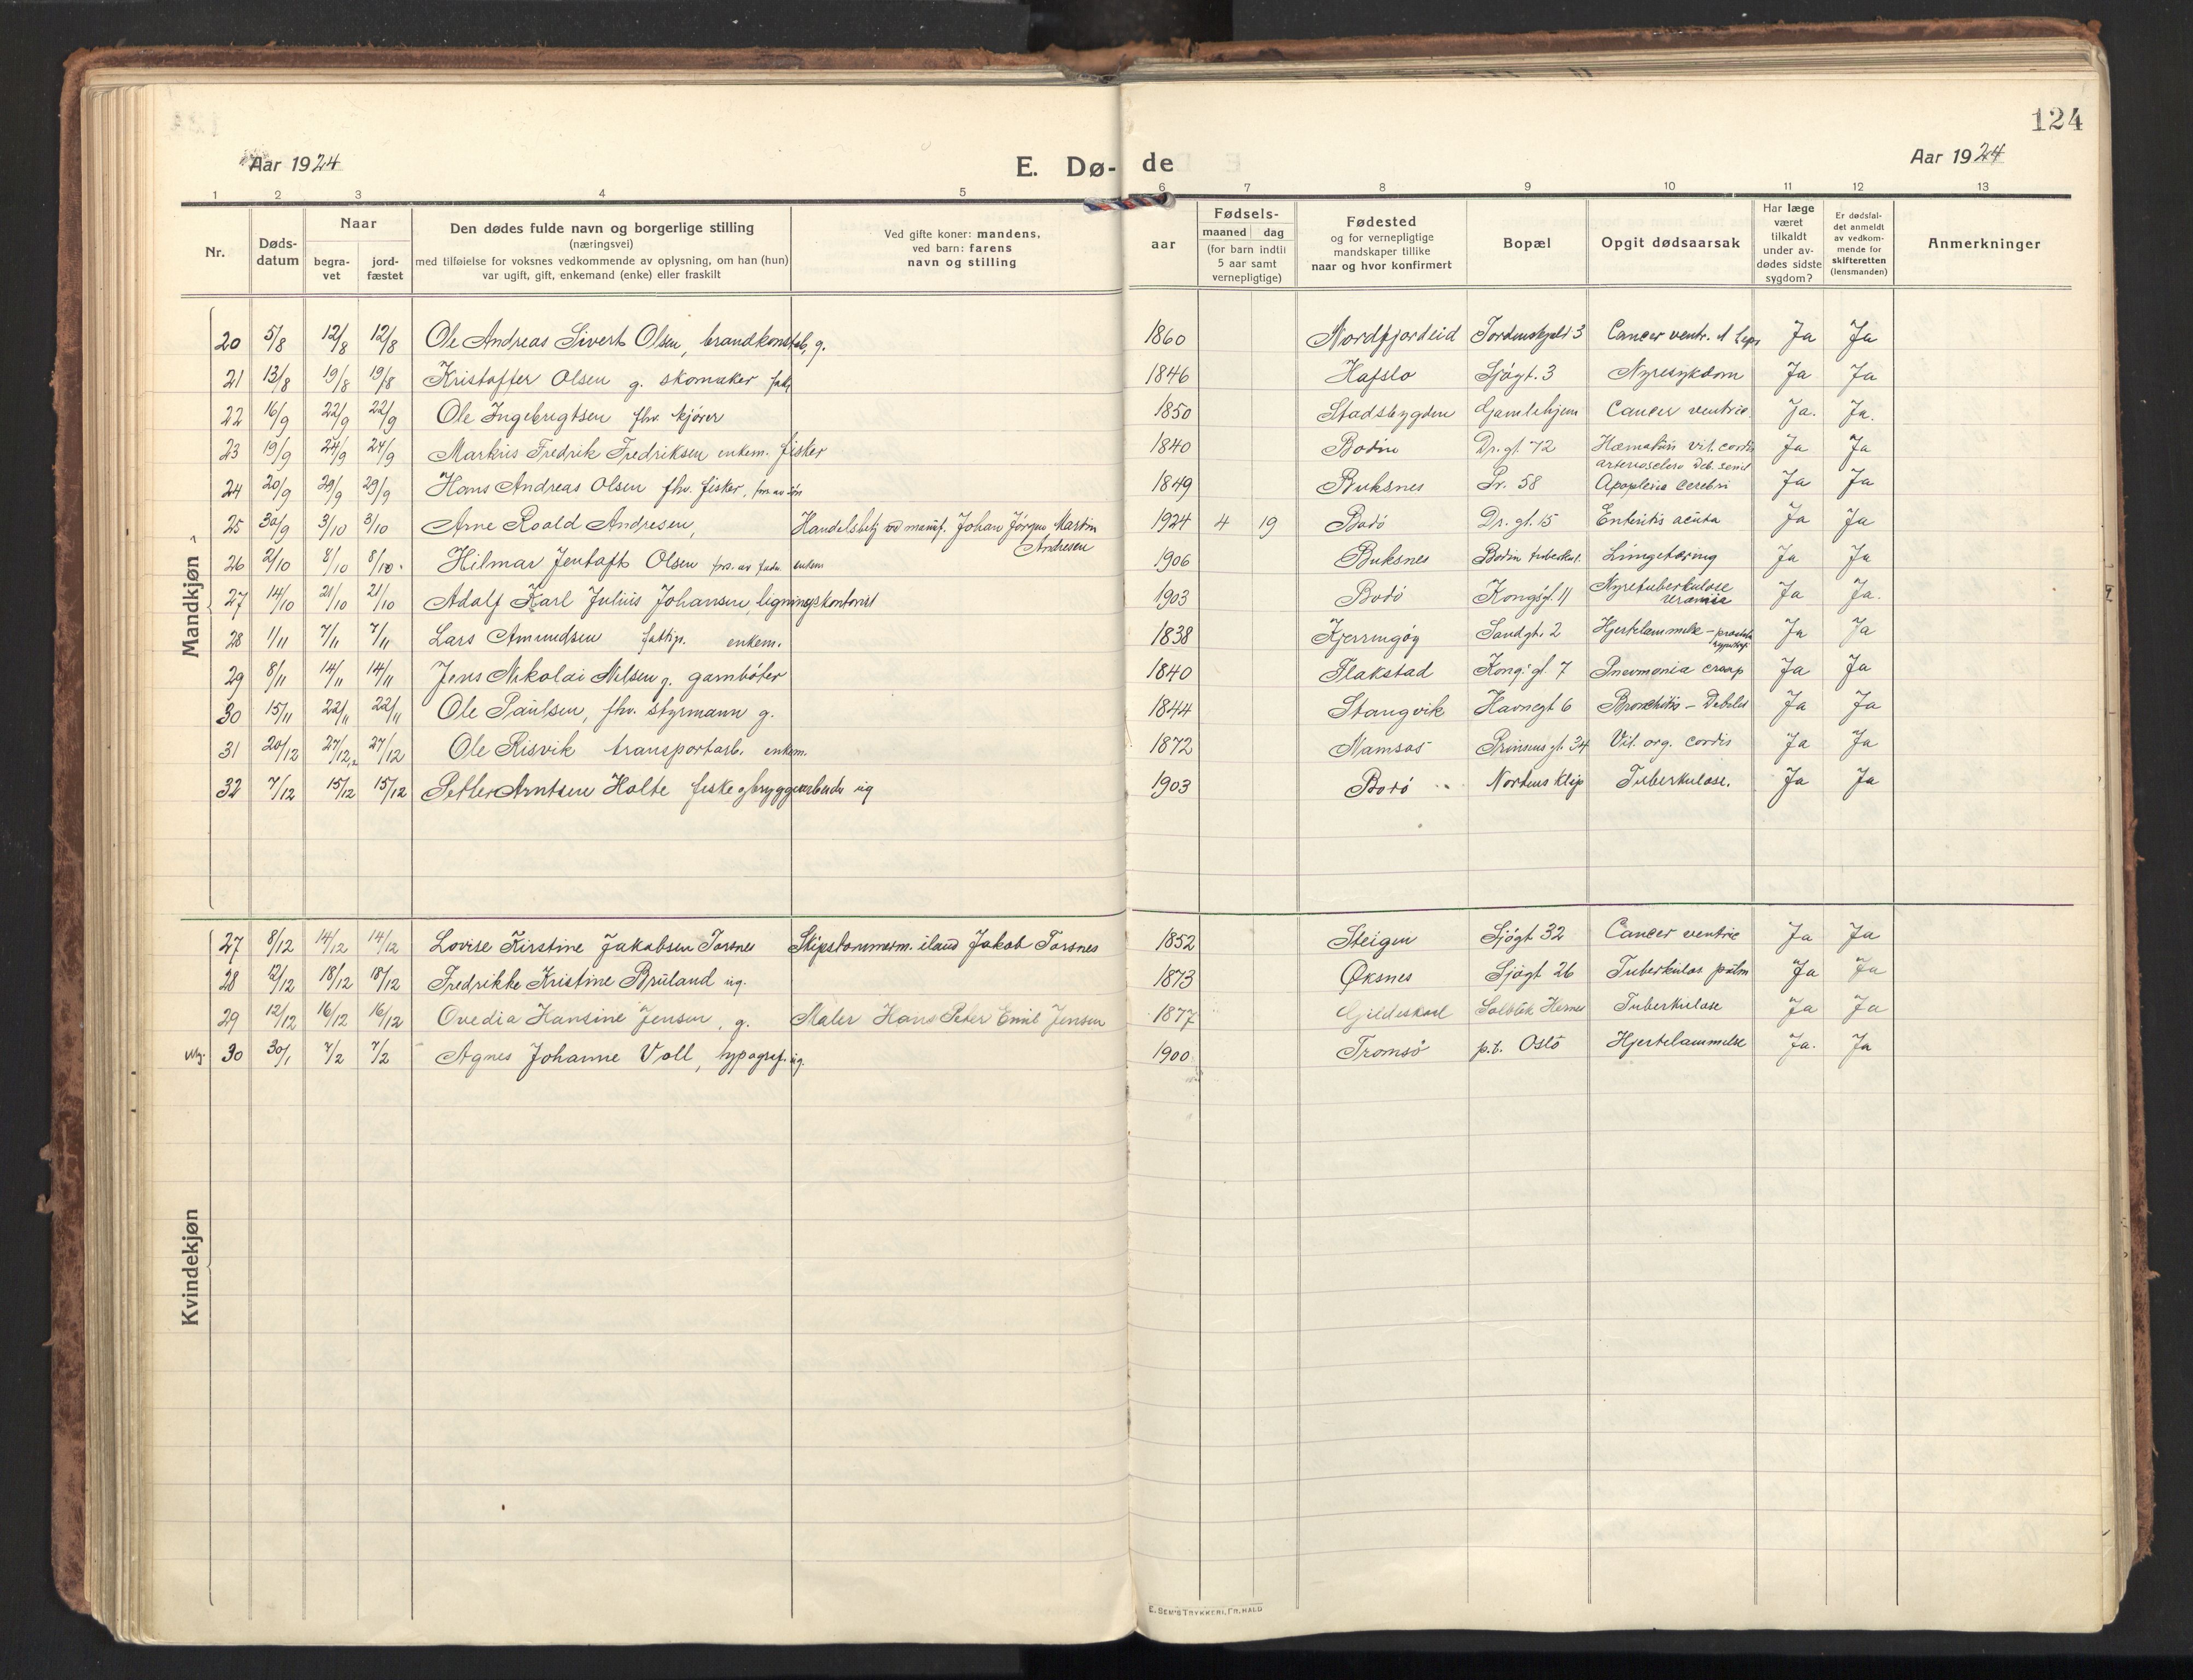 124
Aar 1924
E. Dø- de
Aar 1924
1 2 3 4 5 6 7 8 9 10 11 12 13
Nr.
Døds-
datum
Naar
begra-
vet
jord-
fæstet
Den dødes fulde navn og borgerlige stilling
(næringsvei)
med tilføielse for voksnes vedkommende av oplysning, om han (hun)
var ugift, gift, enkemand (enke) eller fraskilt
Ved gifte koner: mandens,
ved barn: farens
navn og stilling
aar
Fødsels-
maaned dag
(for barn indtil
5 aar samt
vernepligtige)
Fødested
og for vernepligtige
mandskaper tillike
naar og hvor konfirmert
Bopæl
Opgit dødsaarsak
Har læge
været
tilkaldt
under av-
dødes sidste
sygdom?
Er dødsfal-
det anmeldt
av vedkom-
mende for
skifteretten
(lensmanden)
Anmerkninger
Mandkjøn
20 5/8 12/8 12/8 Ole Andreas Sivert Olsen, brandkonstab, g. 1860 Nordfjordeid Tordenskjolds 3 Cancer ventr. Ja Ja
21 13/8 19/8 19/8 Kristoffer Olsen g. skomaker 1846 Hafslo Sjøgt. 3 Nyresykdom Ja Ja
22 16/9 22/9 22/9 Ole Ingebrigtsen fhv. kjører 1850 Stadsbygden Gamlehjem Cancer ventric. Ja. Ja.
23 19/9 24/9 24/9 Markus Fredrik Fredriksen enkem. fisker 1840 Bodin Dr. gt. 72 vit. cordis Ja Ja
arterioselero Deb. senil
24 20/9 29/9 29/9 Hans Andreas Olsen fhv. fisker, 1849 Buksnes Pr. 58 Apoplexia cerebri Ja Ja
25 30/9 3/10 3/10 Arne Roald Andresen, Handelsbetj Johan Jørgen Martin 1924 4 19 Bodø Dr. gt. 15 Enteritis acuta Ja Ja
Andresen
26 2/10 8/10 8/10. Hilmar Jentoft Olsen 1906 Buksnes Bodin tuberkul. Lungetæring Ja Ja
27 14/10 21/10 21/10 Adolf Karl Julius Johansen, ligningskontorist 1903 Bodø Kongsgt. 11 Nyretuberkulose Ja Ja.
28 1/11 7/11 7/11 Lars Amundsen fattigl. enkem. 1838 Kjerringøy Sandgt. 2 Hjertelammelse Ja Ja
29 8/11 14/11 14/11 Jens Nikolai Nilsen g. garnbøter 1840 Flakstad Kong. gt. 7 Pneumonia croup Ja Ja
30 15/11 22/11 22/11 Ole Paulsen, fhv. styrmann g. 1844 Stangvik Havnegt 6 Bronchitis – Ja Ja
31 20/12 27/12 27/12 Ole Risvik transportarb. enkem. 1872 Namsos Prinsens gt. 34 Vit. org. cordis Ja Ja
32 7/12 15/12 15/12 Petter Arntsen Holte fiske og bryggearbeider ug 1903 Bodø Nordens Klip Tuberkulose. Ja Ja
Kvindekjøn
27 8/12 14/12 14/12 Lovise Kirstine Jakobsen Torsnes Skipstømmerm. iland Jakob Torsnes 1852 Steigen Sjøgt 32 Cancer ventric Ja Ja
28 12/12 18/12 18/12 Fredrikke Kristine Bruland ug. 1873 Øksnes Sjøgt 26 Tuberkulos pulm Ja Ja
29 12/12 16/12 16/12 Ovedia Hansine Jensen, g. Maler Hans Peter Emil Jensen 1877 Gildeskaal Solbak Hernes Tuberkulose Ja Ja
30 30/1 7/2 7/2 Agnes Johanne Voll, typograf. ug. 1900 Tromsø p.t. Oslo Hjertelammelse Ja. Ja
E. SEM'S TRYKKERI, FR. HALD